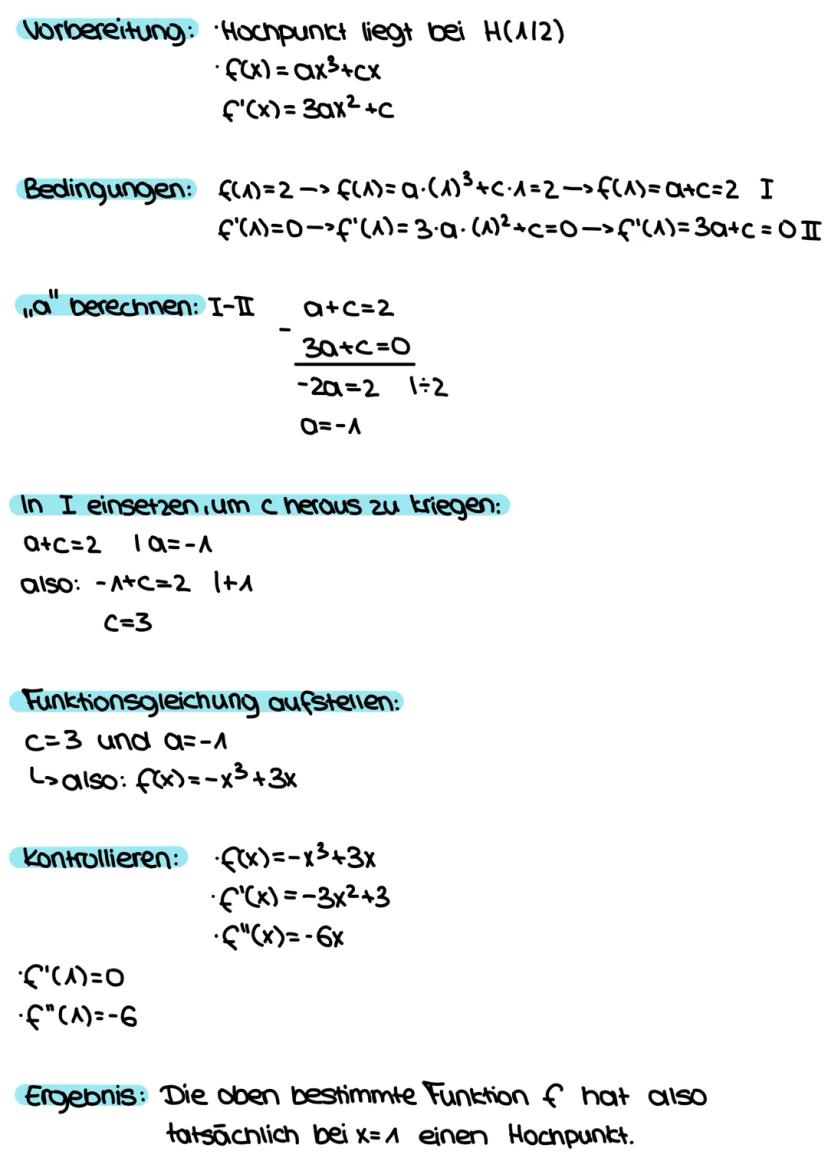 Vorbereitung: · Hochpunkt liegt bei H(1|2)
· f(x) = ax³+cx
f'(x) = 3ax²+c
Bedingungen: f(1)=2 –> f(1)=a·(1)³+c·1=2 –> f(1)=a+c=2 I
f'(1)=0 –> f'(1)=3·a·(1)²+c=0 –> f'(1)=3a+c=0 II
„a" berechnen: I-II a+c=2
- 3a+c=0
-2a=2 |÷2
a=-1
In I einsetzen, um c heraus zu kriegen:
a+c=2 | a=-1
also: -1+c=2 |+1
c=3
Funktionsgleichung aufstellen:
c=3 und a=-1
↳ also: f(x)=-x³+3x
Kontrollieren: · f(x)=-x³+3x
· f'(x)=-3x²+3
· f"(x)=-6x
· f'(1)=0
· f"(1)=-6
Ergebnis: Die oben bestimmte Funktion f hat also
tatsächlich bei x=1 einen Hochpunkt.